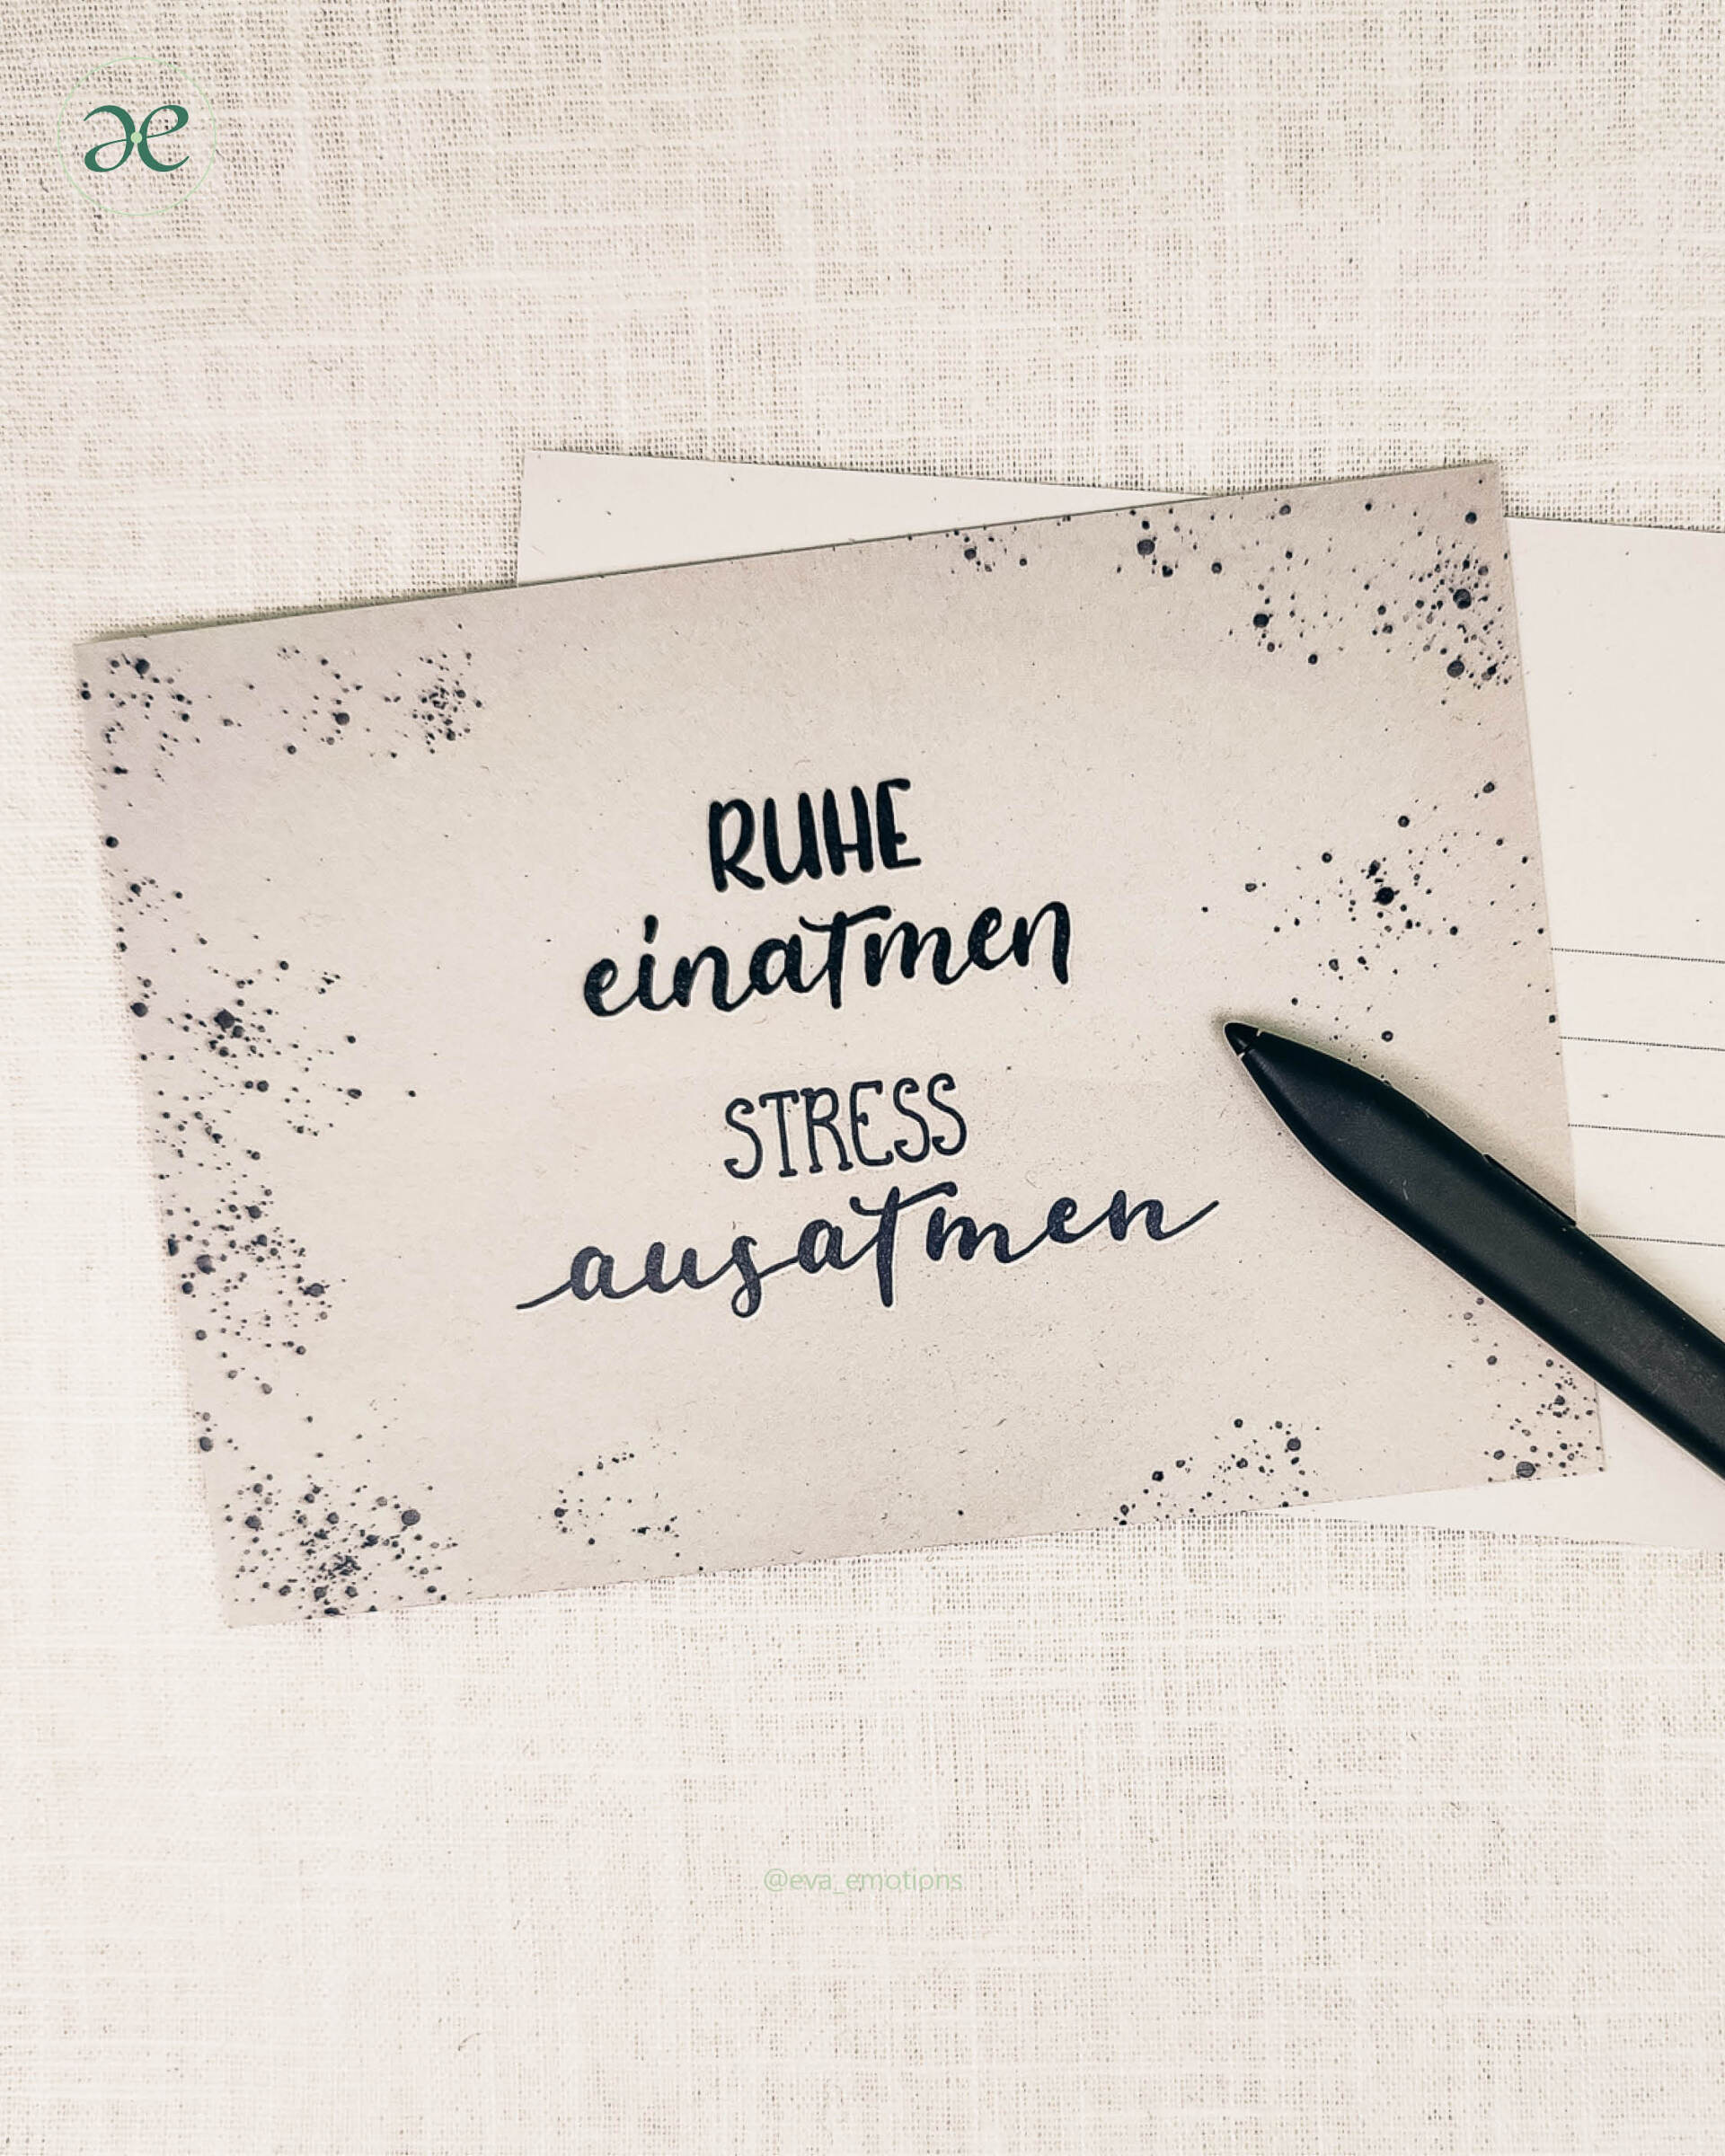 RUHE
einatmen
STRESS
ausatmen
@eva_emotions